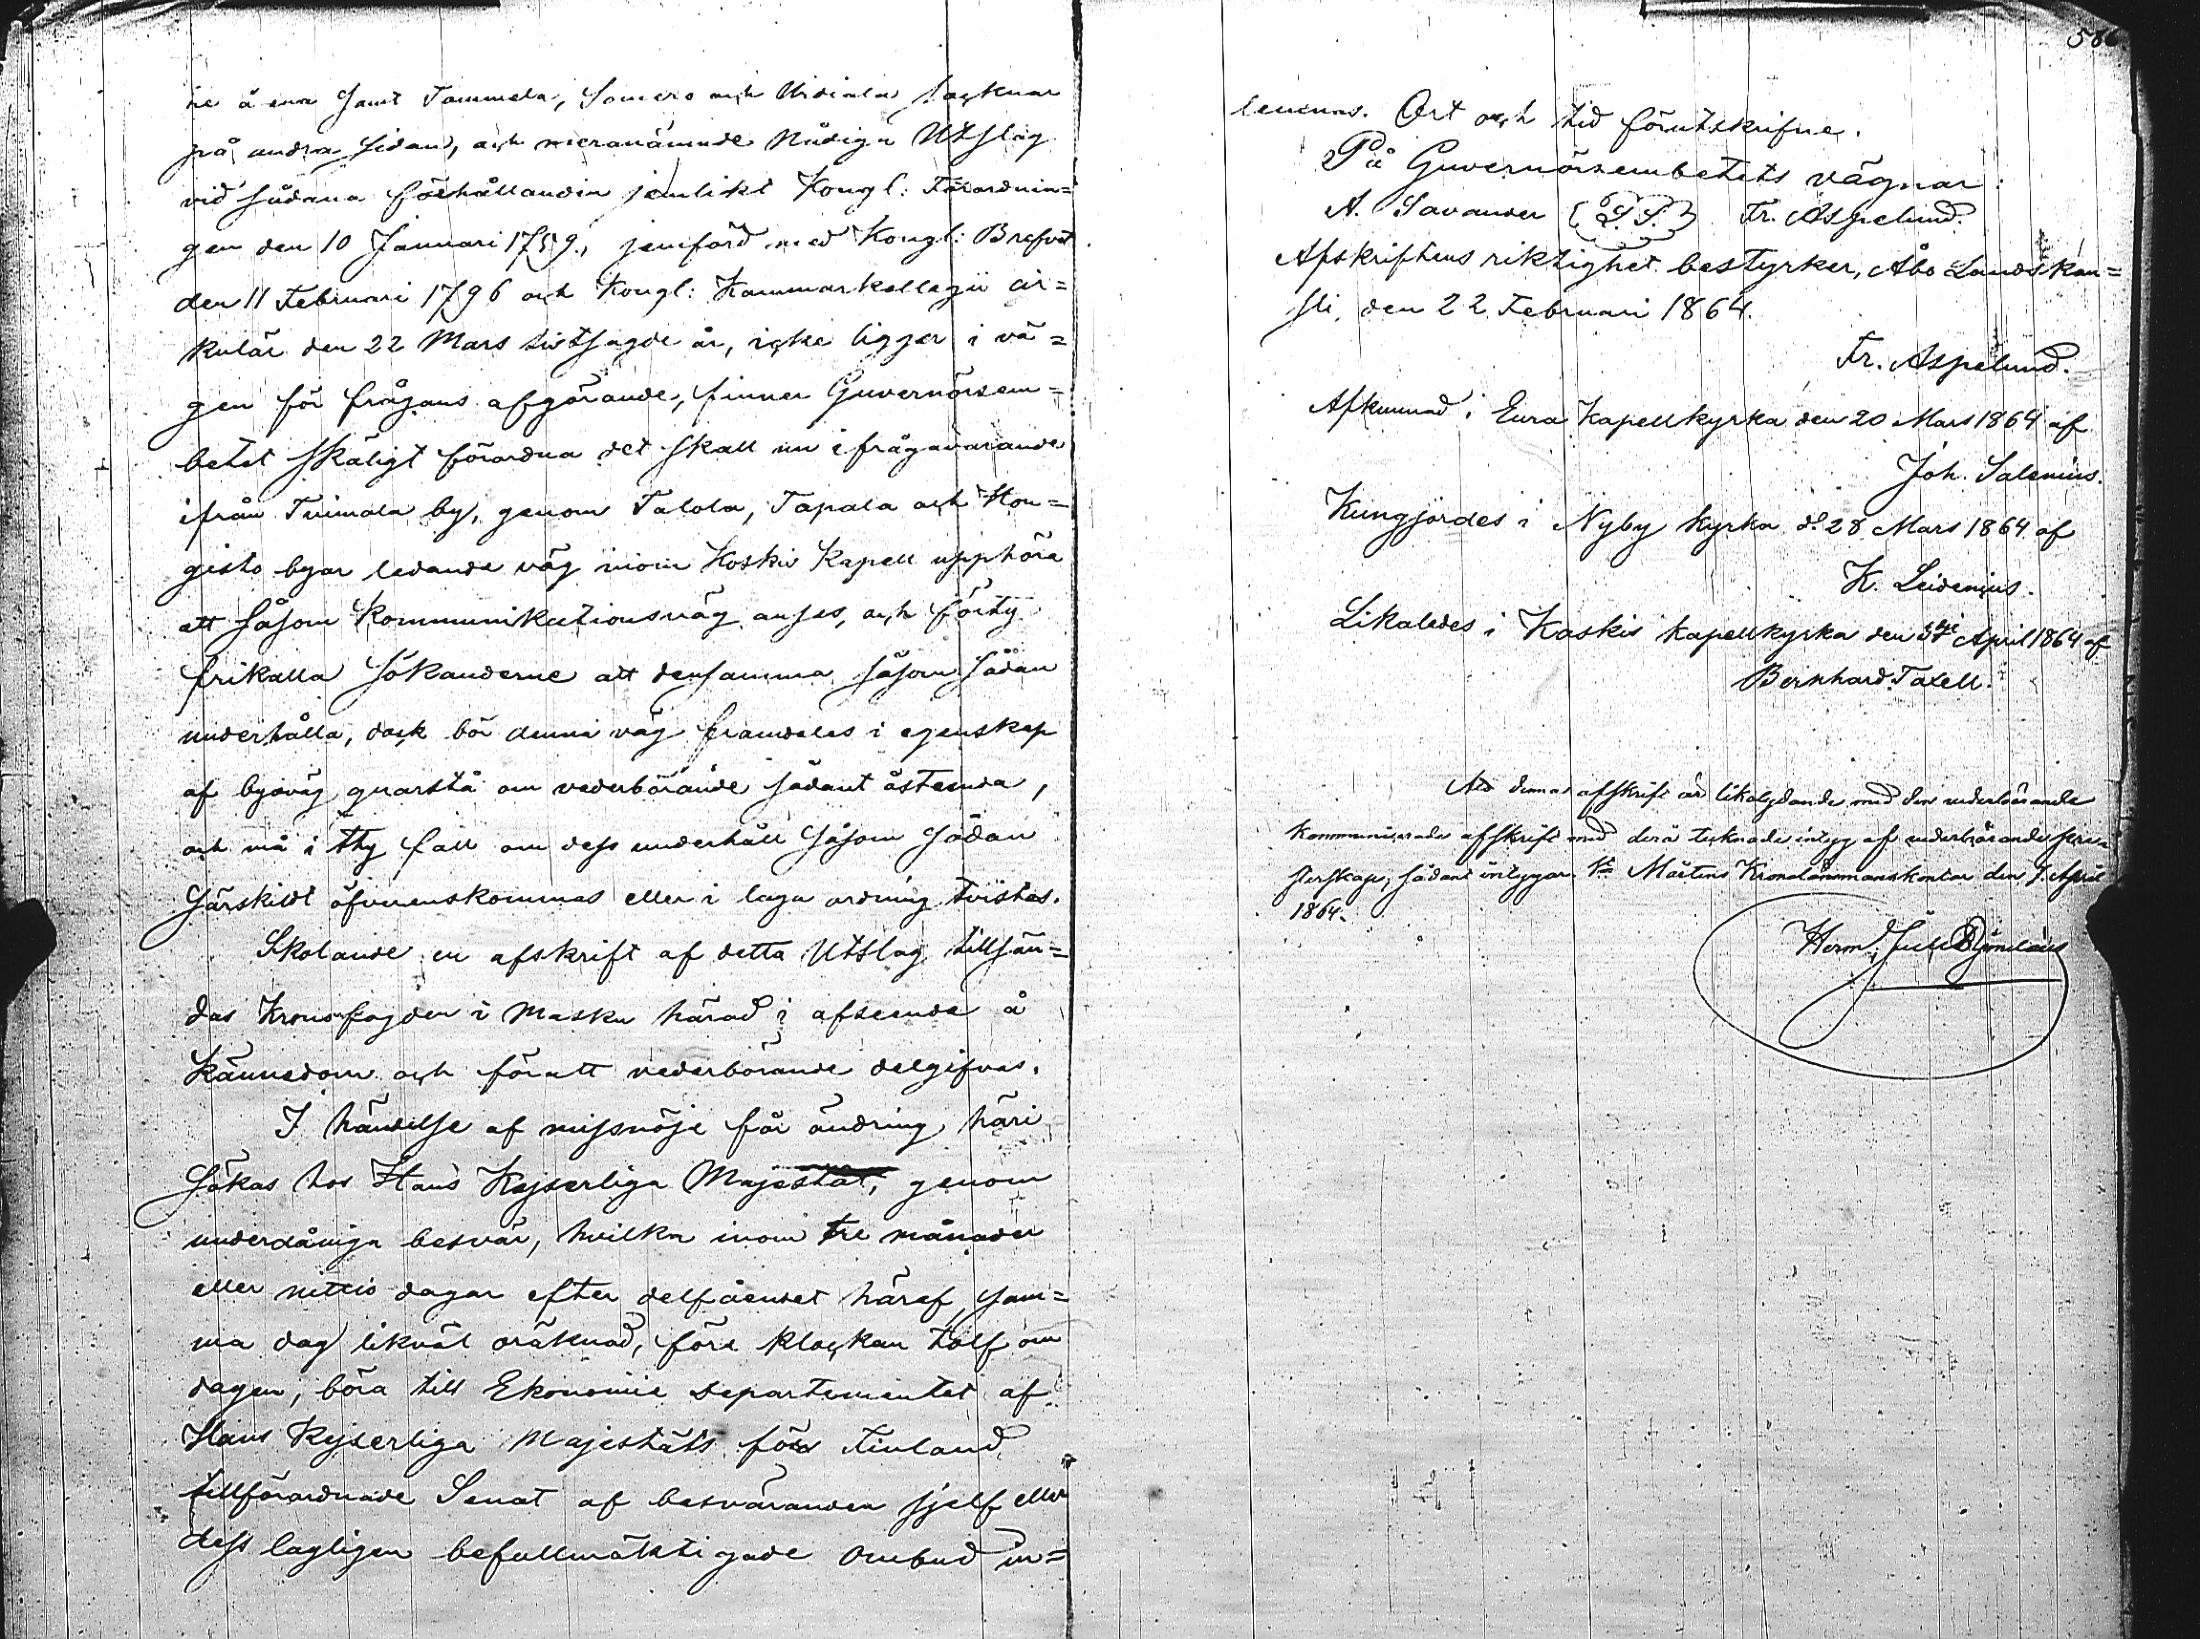 ne å ena samt Tammela, Somero och Urdiala socknar
på andra sidan, och meranämnde Nådiga Utslag
vid sådana förhållanden jemlikt Kongl: Förordnin=
gen den 10 Januari 1759, jemförd med Kongl: Brefvet
den 11 Februari 1796 och Kongl: Kammarkollegii cir=
kulär den 22 Mars sistsagde år, icke ligger i vä=
gen för frågans afgörande, finner Guvernörsem=
betet skäligt förordna det skall nu ifrågavarande
ifrån Tuimala by, genom Talola, Tapala och Hon=
gisto byar ledande väg inom Koskis Kapell upphöra
att såsom Kommunikationsväg anses, och förty
frikalla sökanderne att densamma såsom sådan
underhålla, dock bör denna väg framdeles i egenskap
af byaväg qvarstå om vederbörande sådant åstunda,
och må i thy fall om dess underhåll såsom sådan
särskildt öfverenskommas eller i laga ordning tvistas.
Skolande en afskrift af detta Utslag tillsän=
das Kronofogden i Masku härad i afseende å
kännedom och för att vederbörande delgifvas.
I händelse af missnöje får ändring häri
sökas hos Hans Kejserliga Majestät, genom
underdåniga besvär, hvilka inom tre månader
eller nittio dagar efter delfåendet häraf, sam=
ma dag likväl oräknad, före klockan tolf om
dagen, böra till Ekonomie Departementet af
Hans Kejserliga Majestäts för Finland
tillförordnade Senat af besväranden sjelf eller
dess lagligen befullmäktigade ombud in=
586
lemnas. Ort och tid förutskrifne.
På Guvernörsembetets vägnar:
A. Savander (L.S.) Fr. Aspelund.
Afskriftens riktighet bestyrker, Åbo Landskan=
sli, den 22 Februari 1864.
Fr. Aspelund.
Afkunnad i Eura Kapellkyrka den 20 Mars 1864 af
Joh. Salenius.
Kungjordes i Nyby kyrka d. 28 Mars 1864 af
K. Leidenius.
Likaledes i Koskis kapellkyrka den April 1864 af
Bernhard Taxell.
Att denna afskrift är likalydande med den vederbörande
kommunicerade afskrift med derå tecknade intyg af vederbörande Pre=
sterskap, sådant intygar. St Mårtens Kronolänsmanskontor den April
1864.
Herm.